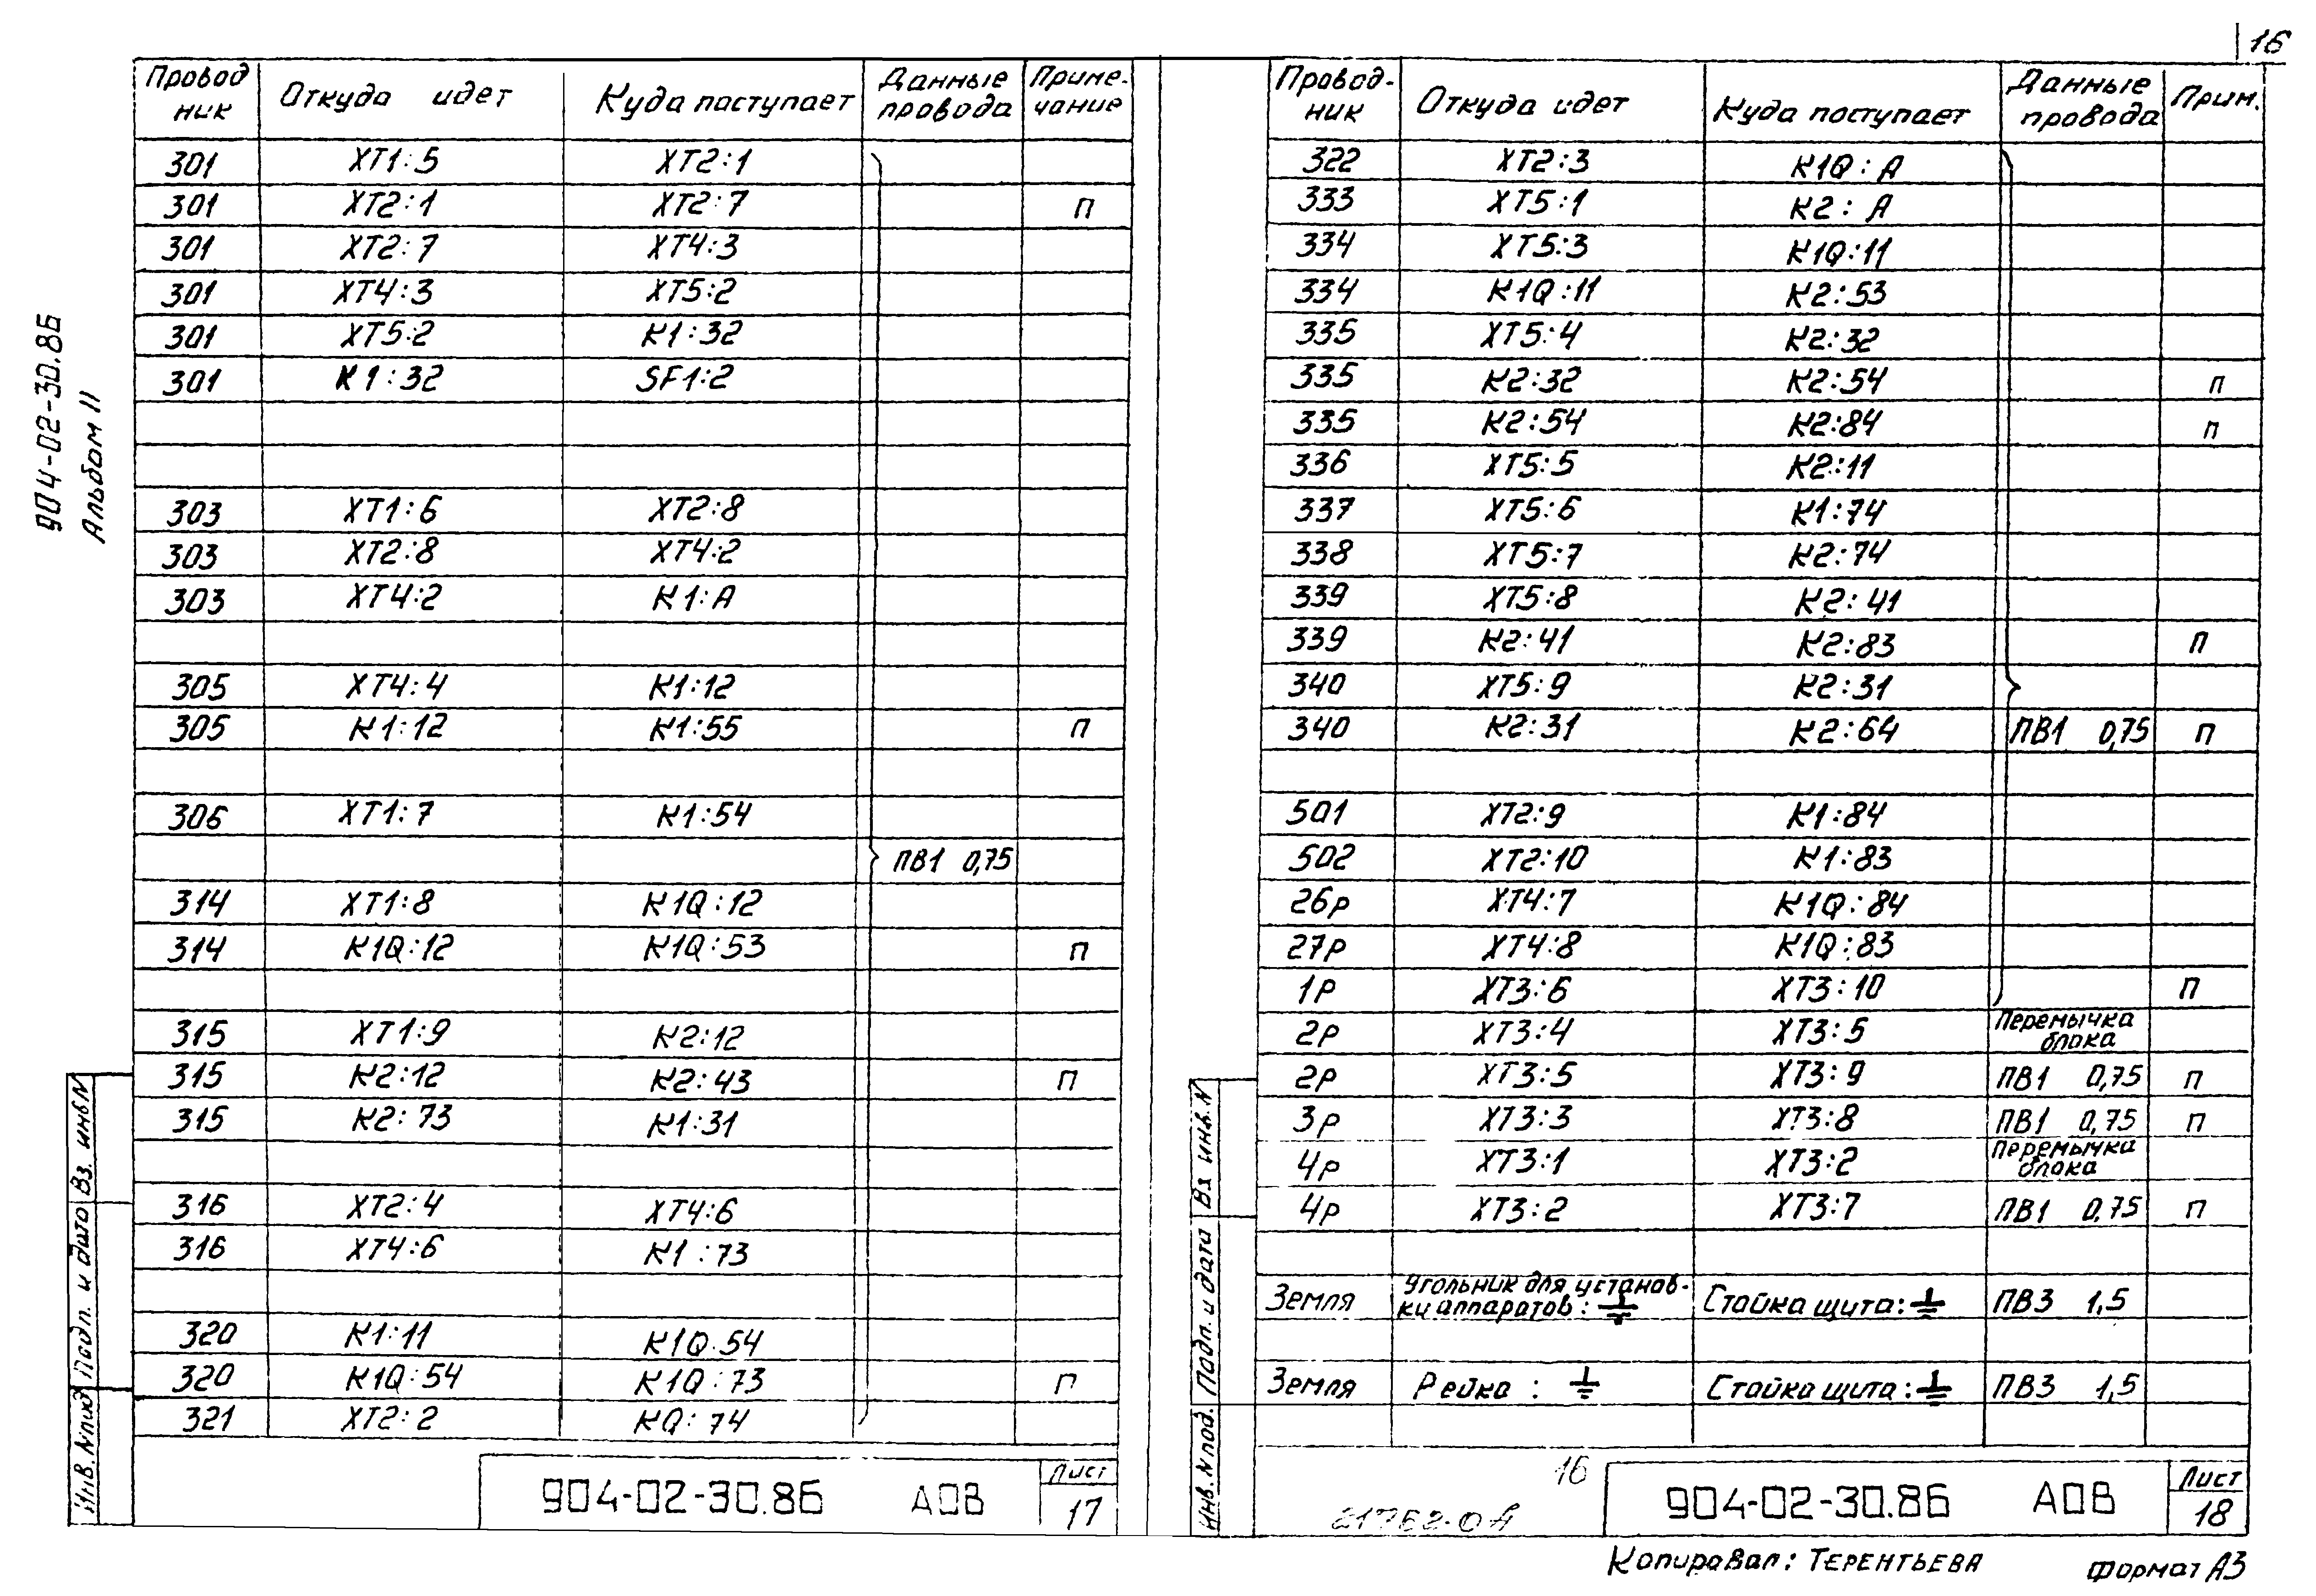 16
904-02-30.86
Альбом II
Провод ник | Откуда идет | Куда поступает | Данные провода | Приме-чание
301 | XT1:5 | XT2:1
301 | XT2:1 | XT2:7 | п
301 | XT2:7 | XT4:3
301 | XT4:3 | XT5:2
301 | XT5:2 | K1:32
301 | K1:32 | SF1:2
303 | XT1:6 | XT2:8
303 | XT2:8 | XT4:2
303 | XT4:2 | K1:A
305 | XT4:4 | K1:12
305 | K1:12 | K1:55 | п
306 | XT1:7 | K1:54
ПВ1 0,75
314 | XT1:8 | K1Q:12
314 | K1Q:12 | K1Q:53 | п
315 | XT1:9 | K2:12
315 | K2:12 | K2:43 | п
315 | K2:73 | K1:31
316 | XT2:4 | XT4:6
316 | XT4:6 | K1:73
320 | K1:11 | K1Q.54
320 | K1Q:54 | K1Q:73 | п
321 | XT2:2 | KQ:74
Инв. N подл Подп. и дата Вз. инв N
904-02-30.86 АОВ
Лист
17
Провод-ник | Откуда идет | Куда поступает | Данные провода | Прим.
322 | XT2:3 | K1Q:A
333 | XT5:1 | K2:A
334 | XT5:3 | K1Q:11
334 | K1Q:11 | K2:53
335 | XT5:4 | K2:32
335 | K2:32 | K2:54 | п
335 | K2:54 | K2:84 | п
336 | XT5:5 | K2:11
337 | XT5:6 | K1:74
338 | XT5:7 | K2:74
339 | XT5:8 | K2:41
339 | K2:41 | K2:83 | п
340 | XT5:9 | K2:31
340 | K2:31 | K2:64 | ПВ1 0,75 | п
501 | XT2:9 | K1:84
502 | XT2:10 | K1:83
26р | XT4:7 | K1Q:84
27р | XT4:8 | K1Q:83
1р | XT3:6 | XT3:10 | п
2р | XT3:4 | XT3:5 | Перемычка блока
2р | XT3:5 | XT3:9 | ПВ1 0,75 | п
3р | XT3:3 | XT3:8 | ПВ1 0,75 | п
4р | XT3:1 | XT3:2 | Перемычка блока
4р | XT3:2 | XT3:7 | ПВ1 0,75 | п
Земля | Угольник для установ-ки аппаратов: ⏚ | Стойка щита: ⏚ | ПВ3 1,5
Земля | Рейка: ⏚ | Стойка щита: ⏚ | ПВ3 1,5
Инв. N под. Подп. и дата Вз инв. N
16
904-02-30.86 АОВ
Лист
18
Копировал: Терентьева
Формат А3